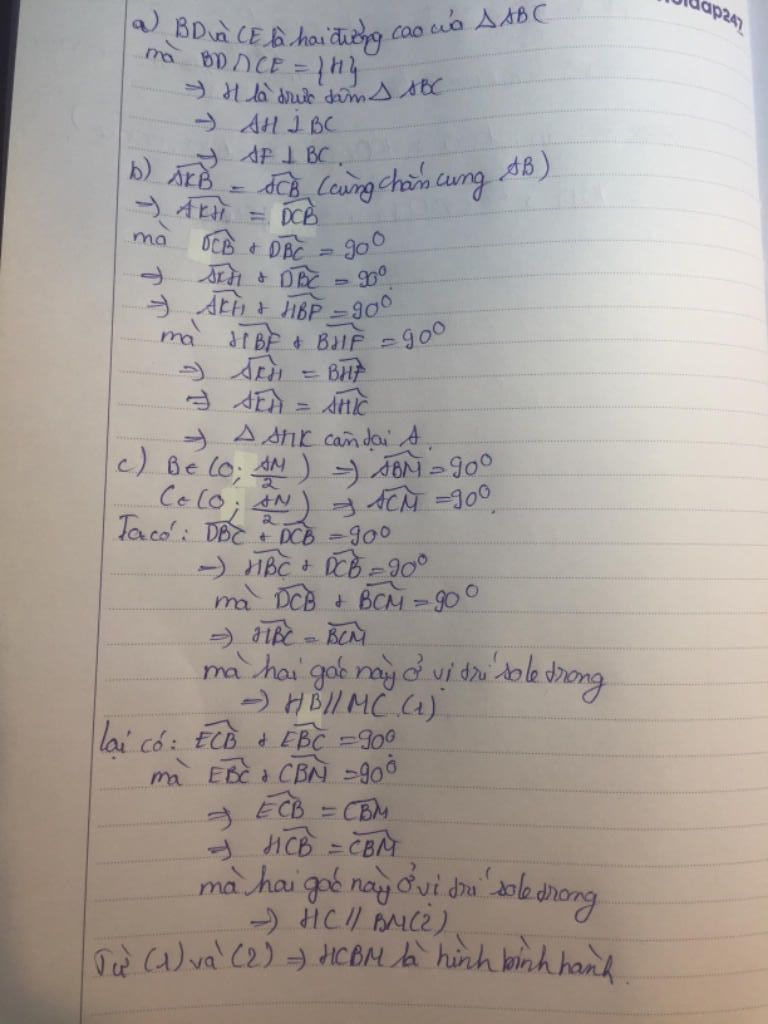 oidap247
a) BD và CE là hai đường cao của △ABC
mà BD∩CE = {H}
⇒ H là trực tâm △ABC
⇒ AH ⊥ BC
⇒ AF ⊥ BC.
b) \widehat{AKB} = \widehat{ACB} (cùng chắn cung AB)
⇒ \widehat{AKH} = \widehat{DCB}
mà \widehat{DCB} + \widehat{DBC} = 90°
⇒ \widehat{AKH} + \widehat{DBC} = 90°.
⇒ \widehat{AKH} + \widehat{HBF} = 90°
mà \widehat{HBF} + \widehat{BHF} = 90°
⇒ \widehat{AKH} = \widehat{BHF}
⇒ \widehat{AKH} = \widehat{AHK}
⇒ △AHK cân tại A.
c) B∈(O; \frac{AM}{2}) ⇒ \widehat{ABM} = 90°
C∈(O; \frac{AM}{2}) ⇒ \widehat{ACM} = 90°.
Ta có: \widehat{DBC} + \widehat{DCB} = 90°
⇒ \widehat{HBC} + \widehat{DCB} = 90°
mà \widehat{DCB} + \widehat{BCM} = 90°
⇒ \widehat{HBC} = \widehat{BCM}
mà hai góc này ở vị trí sole trong
⇒ HB // MC. (1)
lại có: \widehat{ECB} + \widehat{EBC} = 90°
mà \widehat{EBC} + \widehat{CBM} = 90°
⇒ \widehat{ECB} = \widehat{CBM}
⇒ \widehat{HCB} = \widehat{CBM}
mà hai góc này ở vị trí sole trong
⇒ HC // BM (2)
Từ (1) và (2) ⇒ HCBM là hình bình hành.